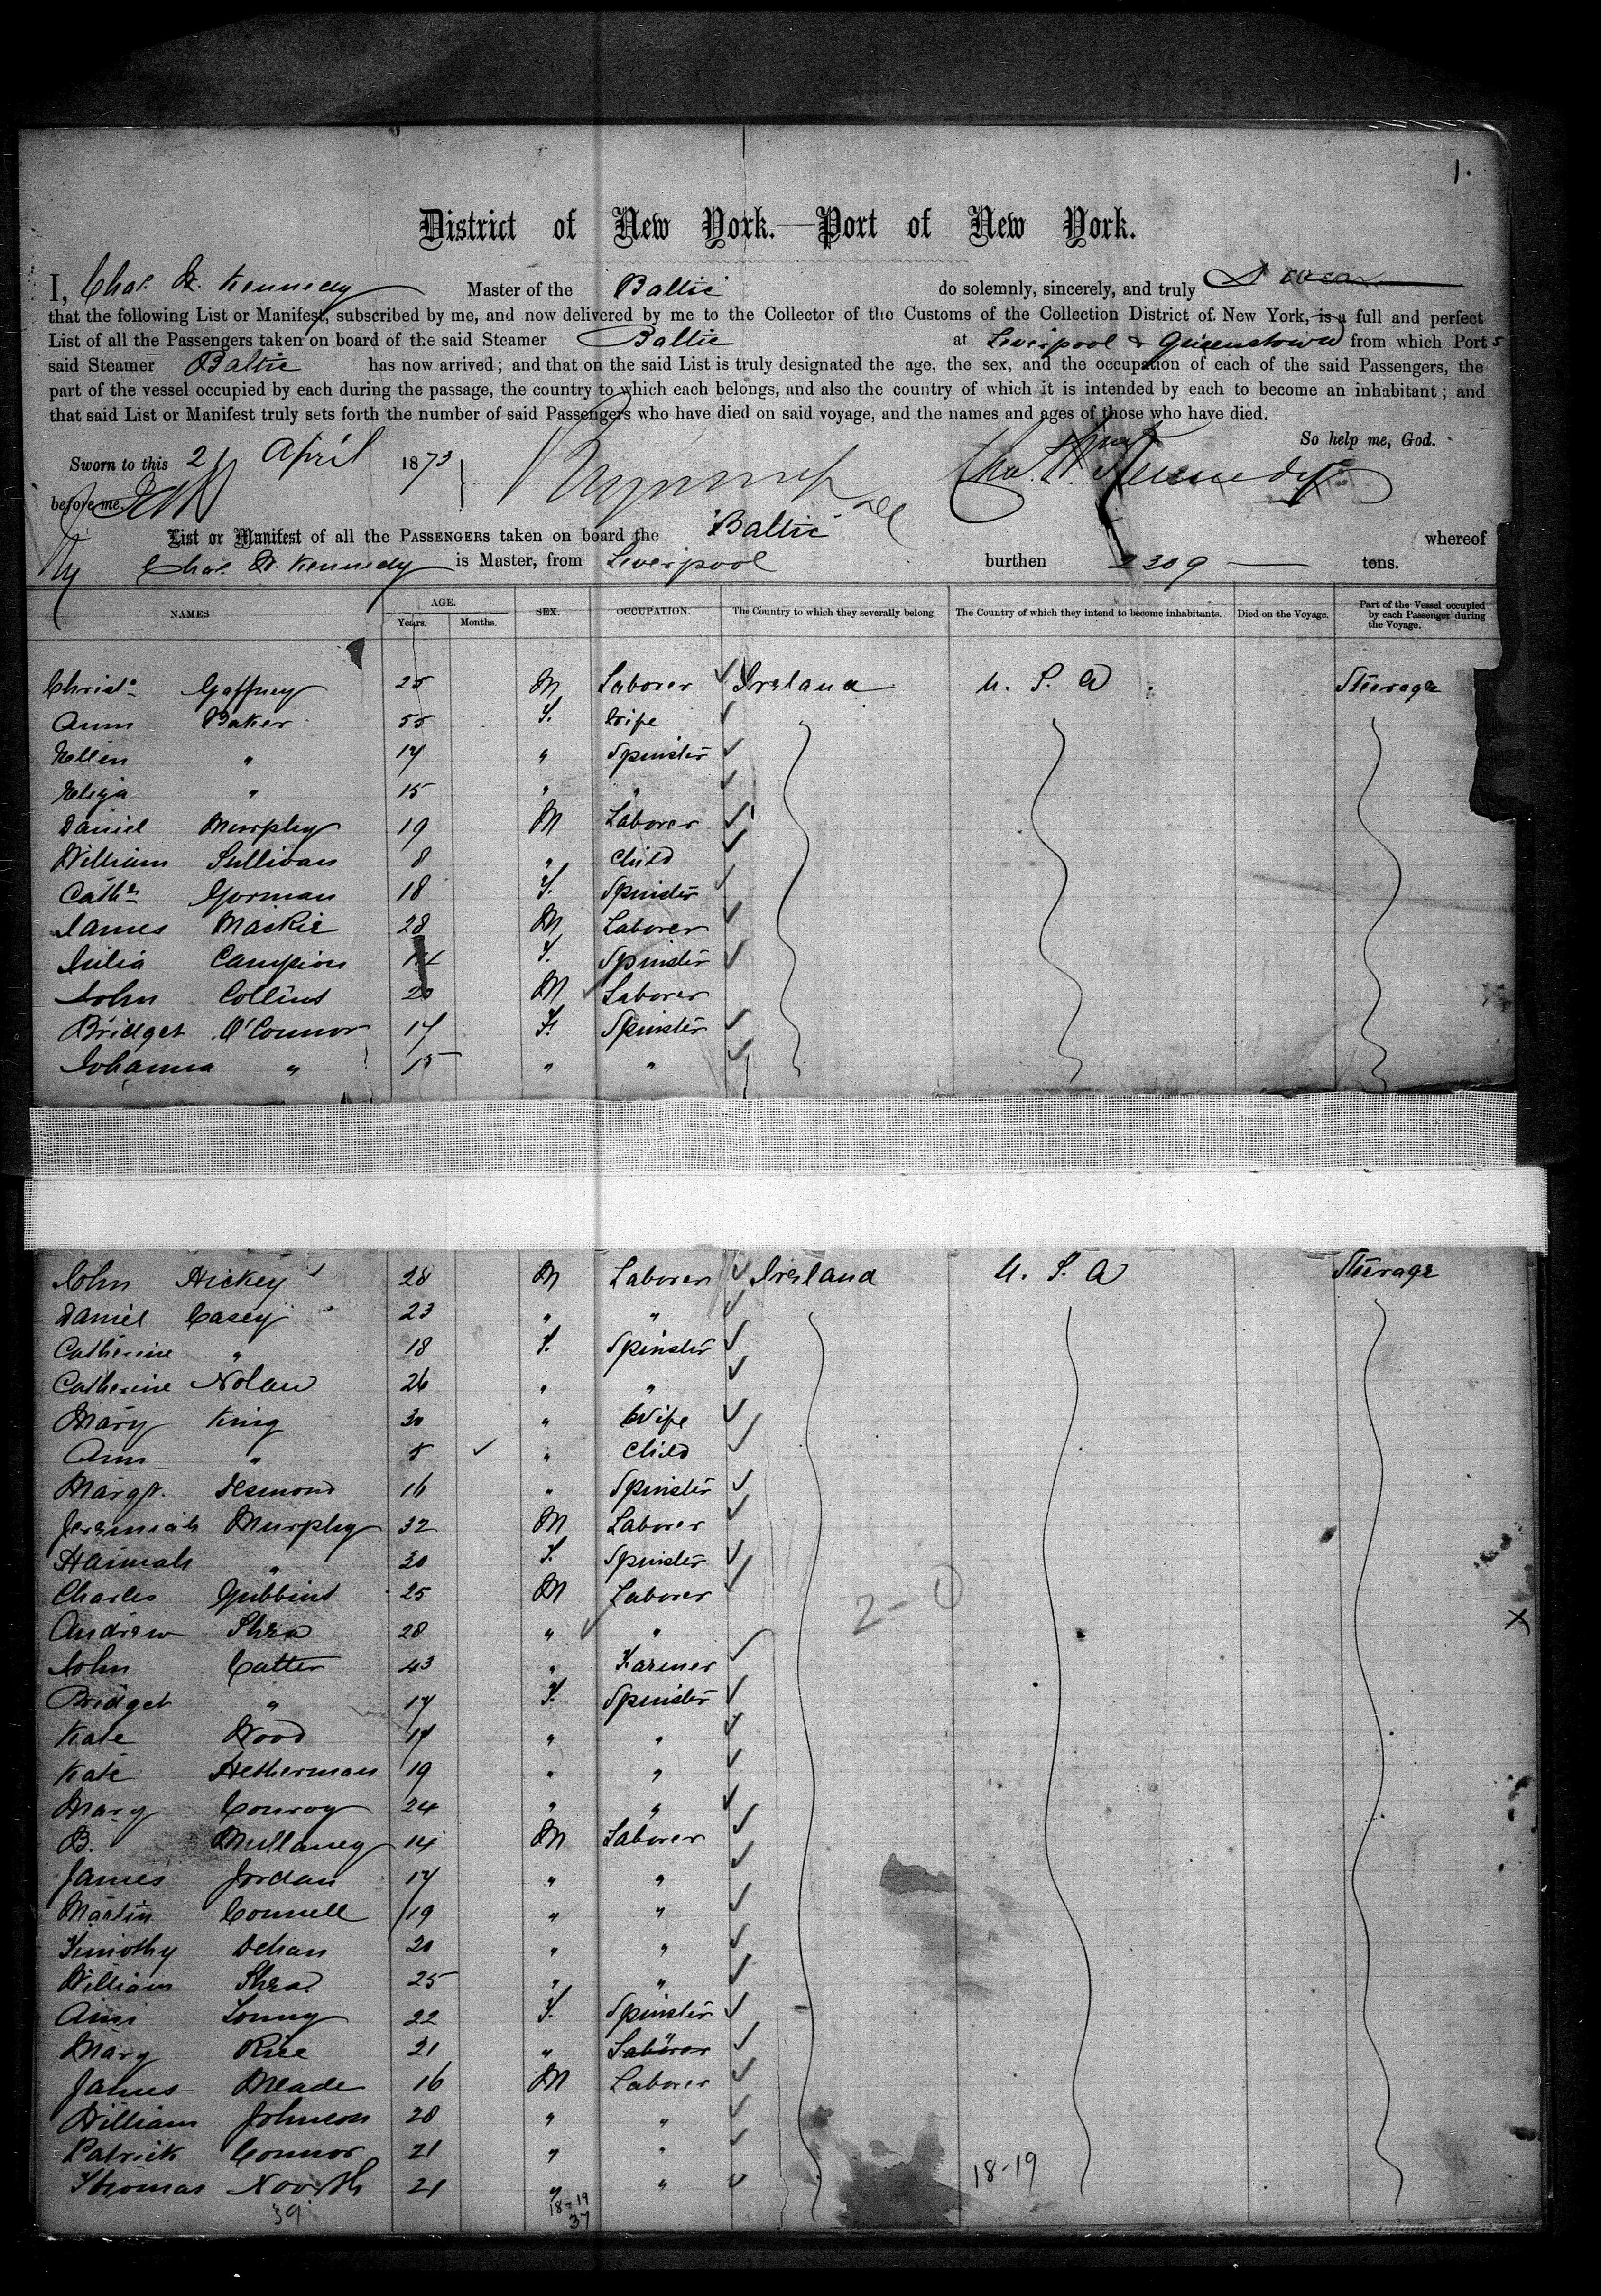 1.
District of New York.—Port of New York.
I, Chas. W. Kennedy Master of the Baltic do solemnly, sincerely, and truly Swear
that the following List or Manifest, subscribed by me, and now delivered by me to the Collector of the Customs of the Collection District of New York, is a full and perfect
List of all the Passengers taken on board of the said Steamer Baltic at Liverpool & Queenstown from which Ports
said Steamer Baltic has now arrived; and that on the said List is truly designated the age, the sex, and the occupation of each of the said Passengers, the
part of the vessel occupied by each during the passage, the country to which each belongs, and also the country of which it is intended by each to become an inhabitant; and
that said List or Manifest truly sets forth the number of said Passengers who have died on said voyage, and the names and ages of those who have died.
So help me, God.
Sworn to this 21 April 1873
before me, Chas. W. Kennedy
List or Manifest of all the PASSENGERS taken on board the Baltic whereof
Chas. W. Kennedy is Master, from Liverpool burthen 2309 tons.
NAMES AGE. Years. Months. SEX. OCCUPATION. The Country to which they severally belong The Country of which they intend to become inhabitants. Died on the Voyage. Part of the Vessel occupied by each Passenger during the Voyage.
Christr Gaffney 25 M Laborer Ireland U. S. A Steerage
Ann Baker 55 F. Wife
Ellen " 17 " Spinster
Eliza " 15 " "
Daniel Murphy 19 M Laborer
William Sullivan 8 " Child
Cathe Gorman 18 F. Spinster
James Mackie 28 M Laborer
Julia Campion F. Spinster
John Collins 20 M Laborer
Bridget O'Connor 17 F. Spinster
Johanna " 15 " "
John Hickey 28 M Laborer Ireland U. S. A Steerage
Daniel Casey 23 " "
Catherine " 18 F. Spinster
Catherine Nolan 26 " "
Mary King 30 " Wife
Ann " 5 " Child
Margt. Desmond 16 " Spinster
Jeremiah Murphy 32 M Laborer
Hannah " 20 F. Spinster
Charles Gubbins 25 M Laborer
Andrew Shea 28 " "
John Catter 43 " Farmer
Bridget " 17 F. Spinster
Kate Wood 17 " "
Kate Hetherman 19 " "
Mary Conroy 24 " "
B. Mullaney 14 M Laborer
James Jordan 17 " "
Martin Connell 19 " "
Timothy Dehan 20 " "
William Shea 25 " "
Ann Tonny 22 F. Spinster
Mary Rice 21 " Laborer
James Meade 16 M Laborer
William Johnson 28 " "
Patrick Connor 21 " "
Thomas North 21 " "
18-19
39
18-19
37